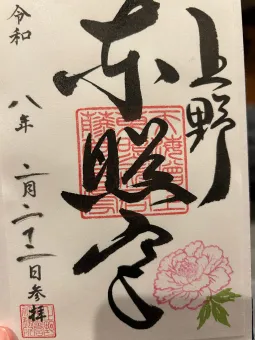 上野
東照宮
令和
八年
二月二十二日参拝